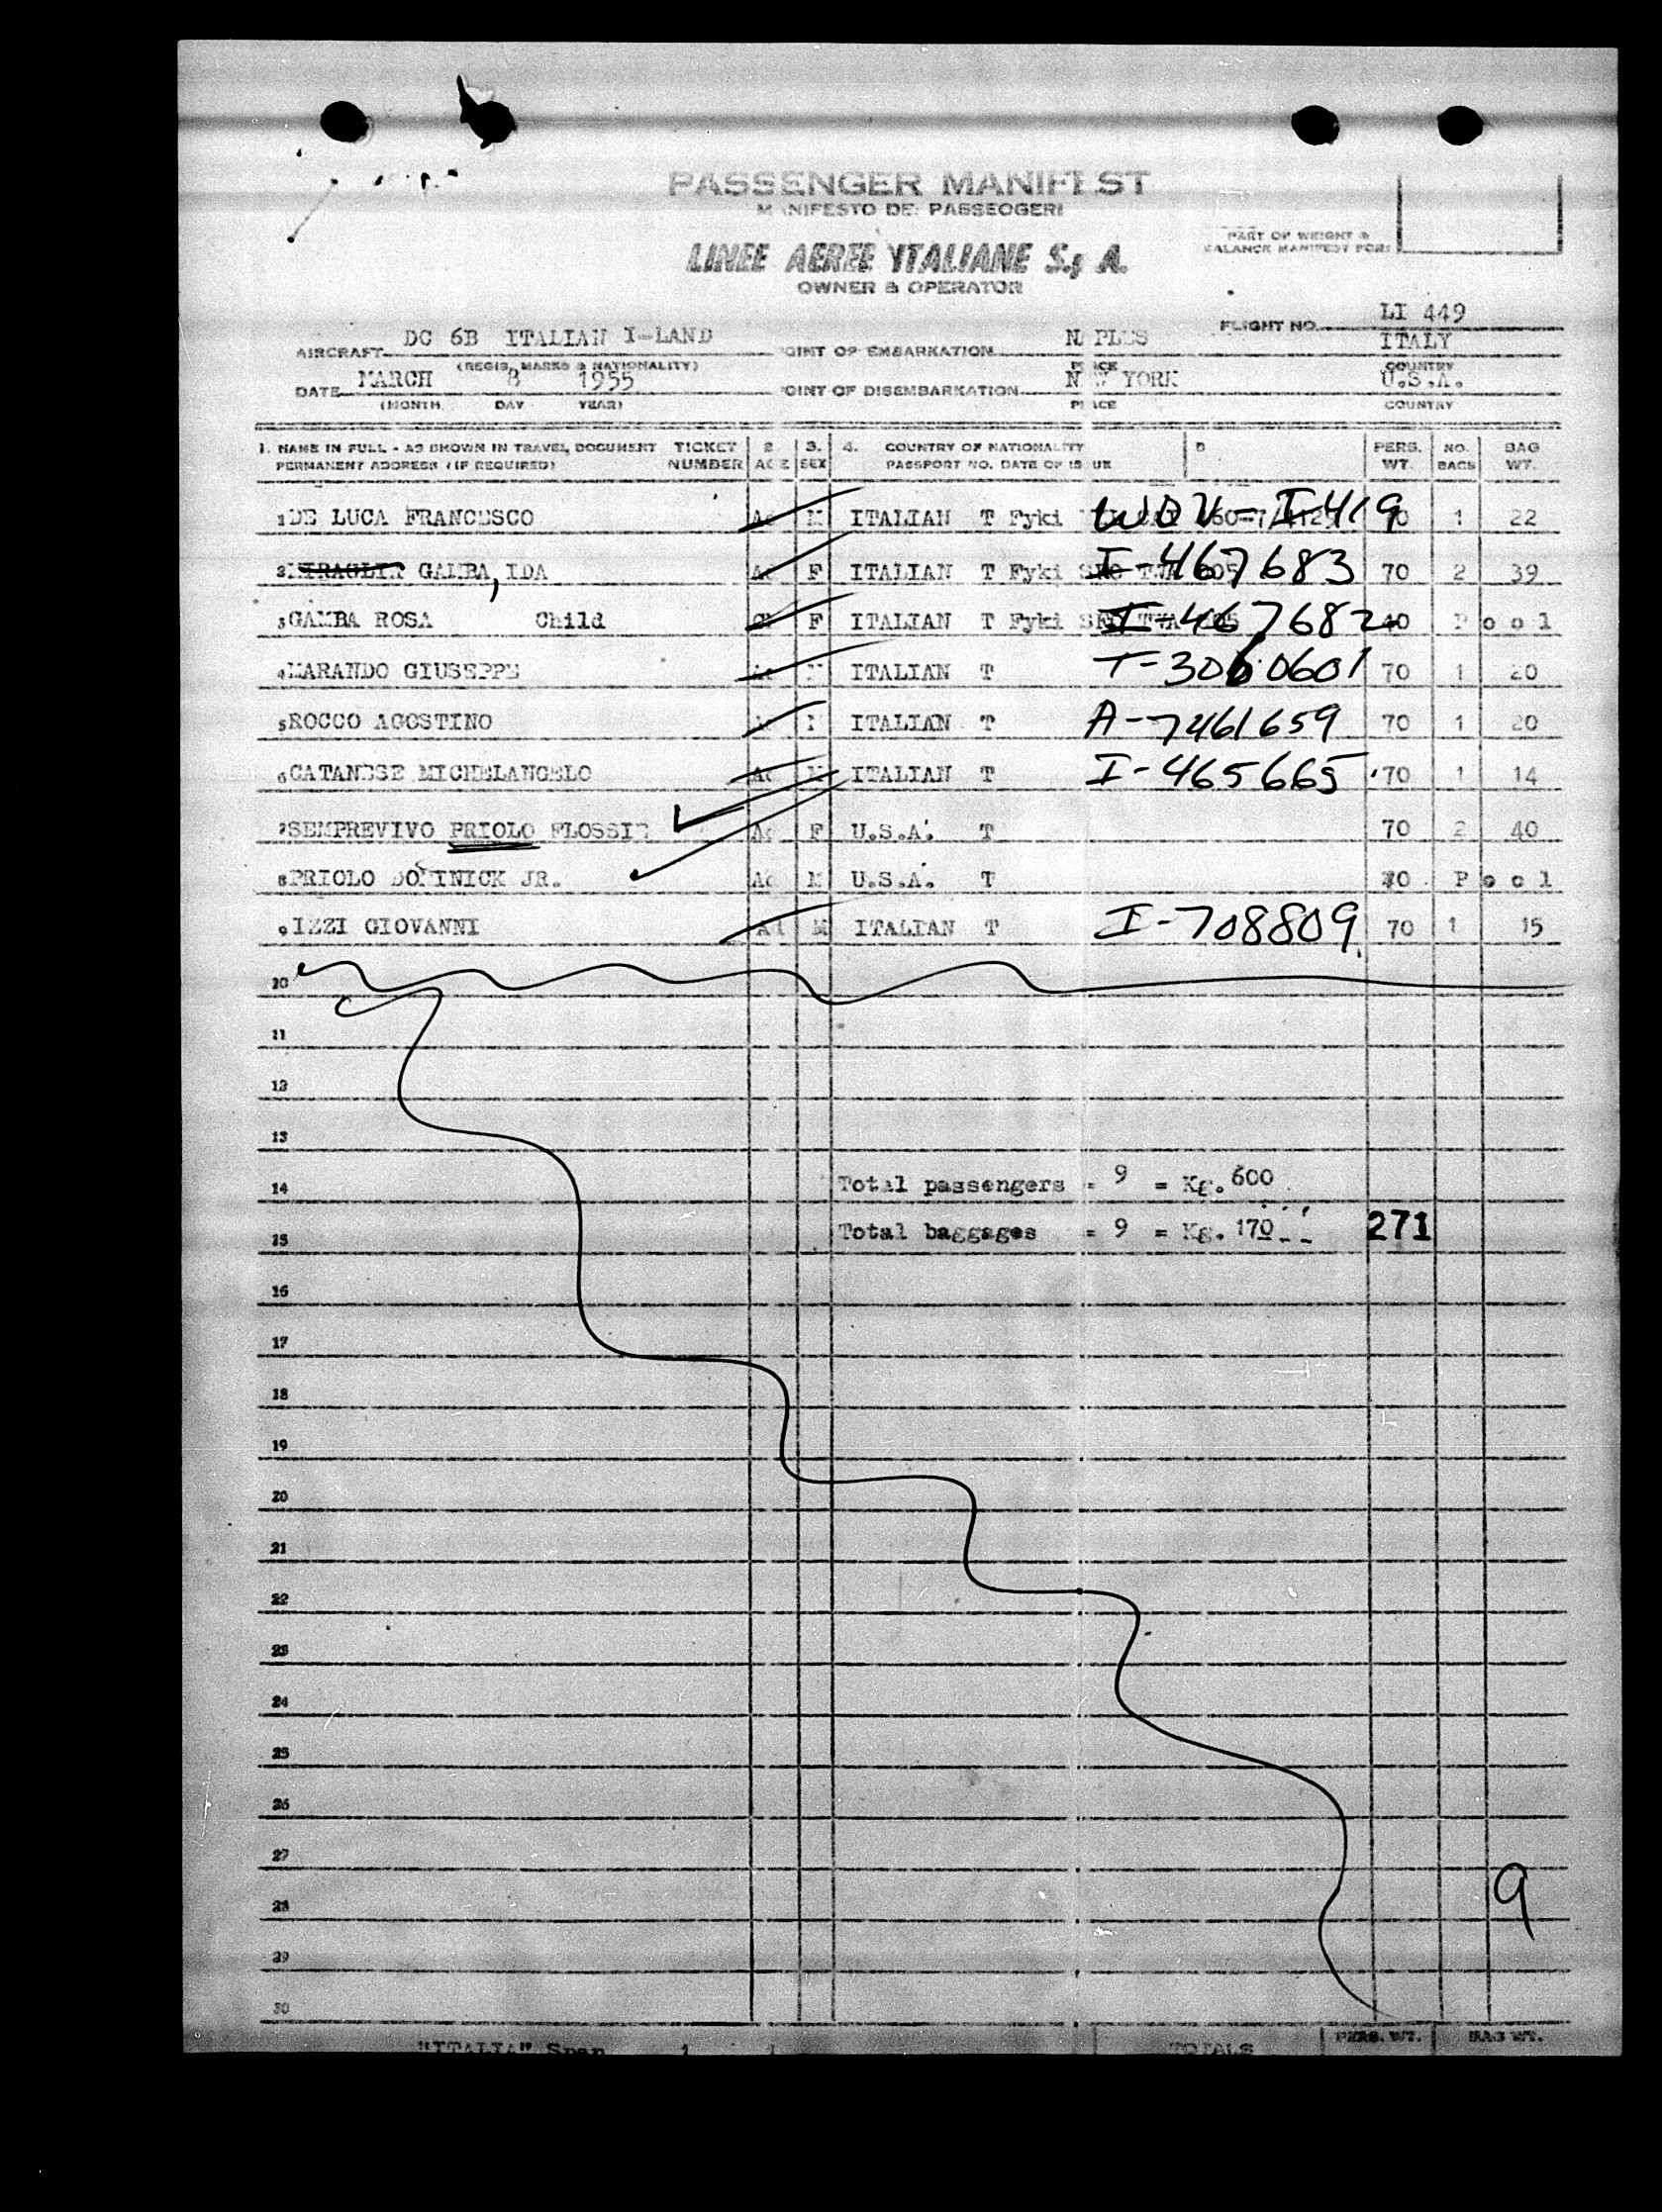 PASSENGER MANIFEST
MANIFESTO DEI PASSEOGERI
PART OF WEIGHT &
BALANCE MANIFEST FOR:
LINEE AEREE ITALIANE S.p A.
OWNER & OPERATOR
AIRCRAFT DC 6B ITALIAN I-LAND POINT OF EMBARKATION NAPLES FLIGHT NO. LI 449
ITALY
(REGIS. MARKS & NATIONALITY) PLACE COUNTRY
DATE MARCH 8 1955 POINT OF DISEMBARKATION NEW YORK U.S.A.
(MONTH DAY YEAR) PLACE COUNTRY
1. NAME IN FULL - AS SHOWN IN TRAVEL DOCUMENT TICKET 2 3. 4. COUNTRY OF NATIONALITY 5 PERS. NO. BAG
PERMANENT ADDRESS (IF REQUIRED) NUMBER AGE SEX PASSPORT NO. DATE OF ISSUE WT. BAGS WT.
1 DE LUCA FRANCESCO Ad M ITALIAN T Fyki WDV-I-419 70 1 22
2 MIRAGLIA GAMBA, IDA Ad F ITALIAN T Fyki I-467683 70 2 39
3 GAMBA ROSA Child Ch F ITALIAN T Fyki I-467682 40 Pool
4 MARANDO GIUSEPPE Ad M ITALIAN T T-3060601 70 1 20
5 ROCCO AGOSTINO Ad M ITALIAN T A-7461659 70 1 20
6 CATANESE MICHELANGELO Ad M ITALIAN T I-465665 70 1 14
7 SEMPREVIVO PRIOLO FLOSSIE Ad F U.S.A. T 70 2 40
8 PRIOLO DOMINICK JR. Ad M U.S.A. T 70 Pool
9 IZZI GIOVANNI Ad M ITALIAN T I-708809 70 1 15
10
11
12
13
14 Total passengers = 9 = Kg. 600
15 Total baggages = 9 = Kg. 170 271
16
17
18
19
20
21
22
23
24
25
26
27
28 9
29
30
PERS. WT. BAG WT.
"ITALIA" Span TOTALS